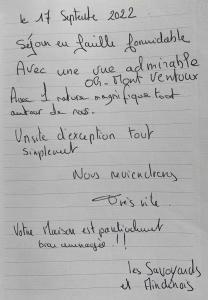 le 17 Septembre 2022
Séjour en famille formidable
Avec une vue admirable
Mont Ventoux
Avec 1 nature magnifique tout
autour de nous.
Un site d'exception tout
simplement
Nous reviendrons
Très vite.
Votre Maison est parfaitement
bien aménagée !!!
les Savoyards
et